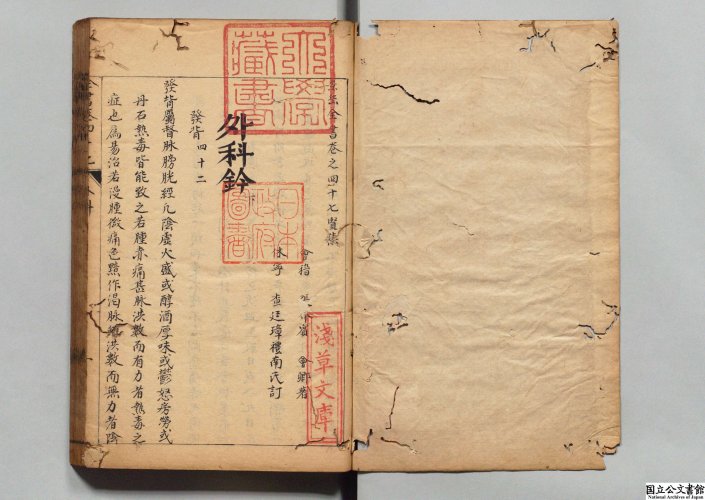 景岳全書卷之四十七賢集
會稽 會卿著
休寧 查廷璋禮南氏訂
外科鈐
發背四十二
發背屬督脉膀胱經凡陰虛火盛或醇酒厚味或鬱怒房勞或
丹石熱毒皆能致之若腫赤痛甚脉洪數而有力者熱毒之
症也為易治若漫腫微痛色黯作渴脉洪數而無力者陰
大學藏書
日本政府圖書
淺草文庫
国立公文書館
National Archives of Japan